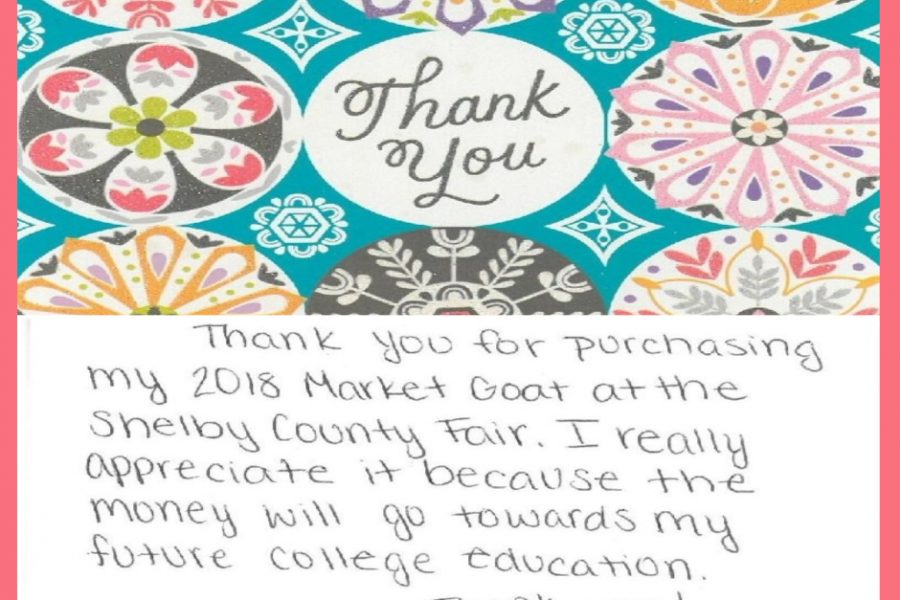 Thank
You
Thank you for purchasing
my 2018 Market Goat at the
Shelby County Fair. I really
appreciate it because the
money will go towards my
future college education.